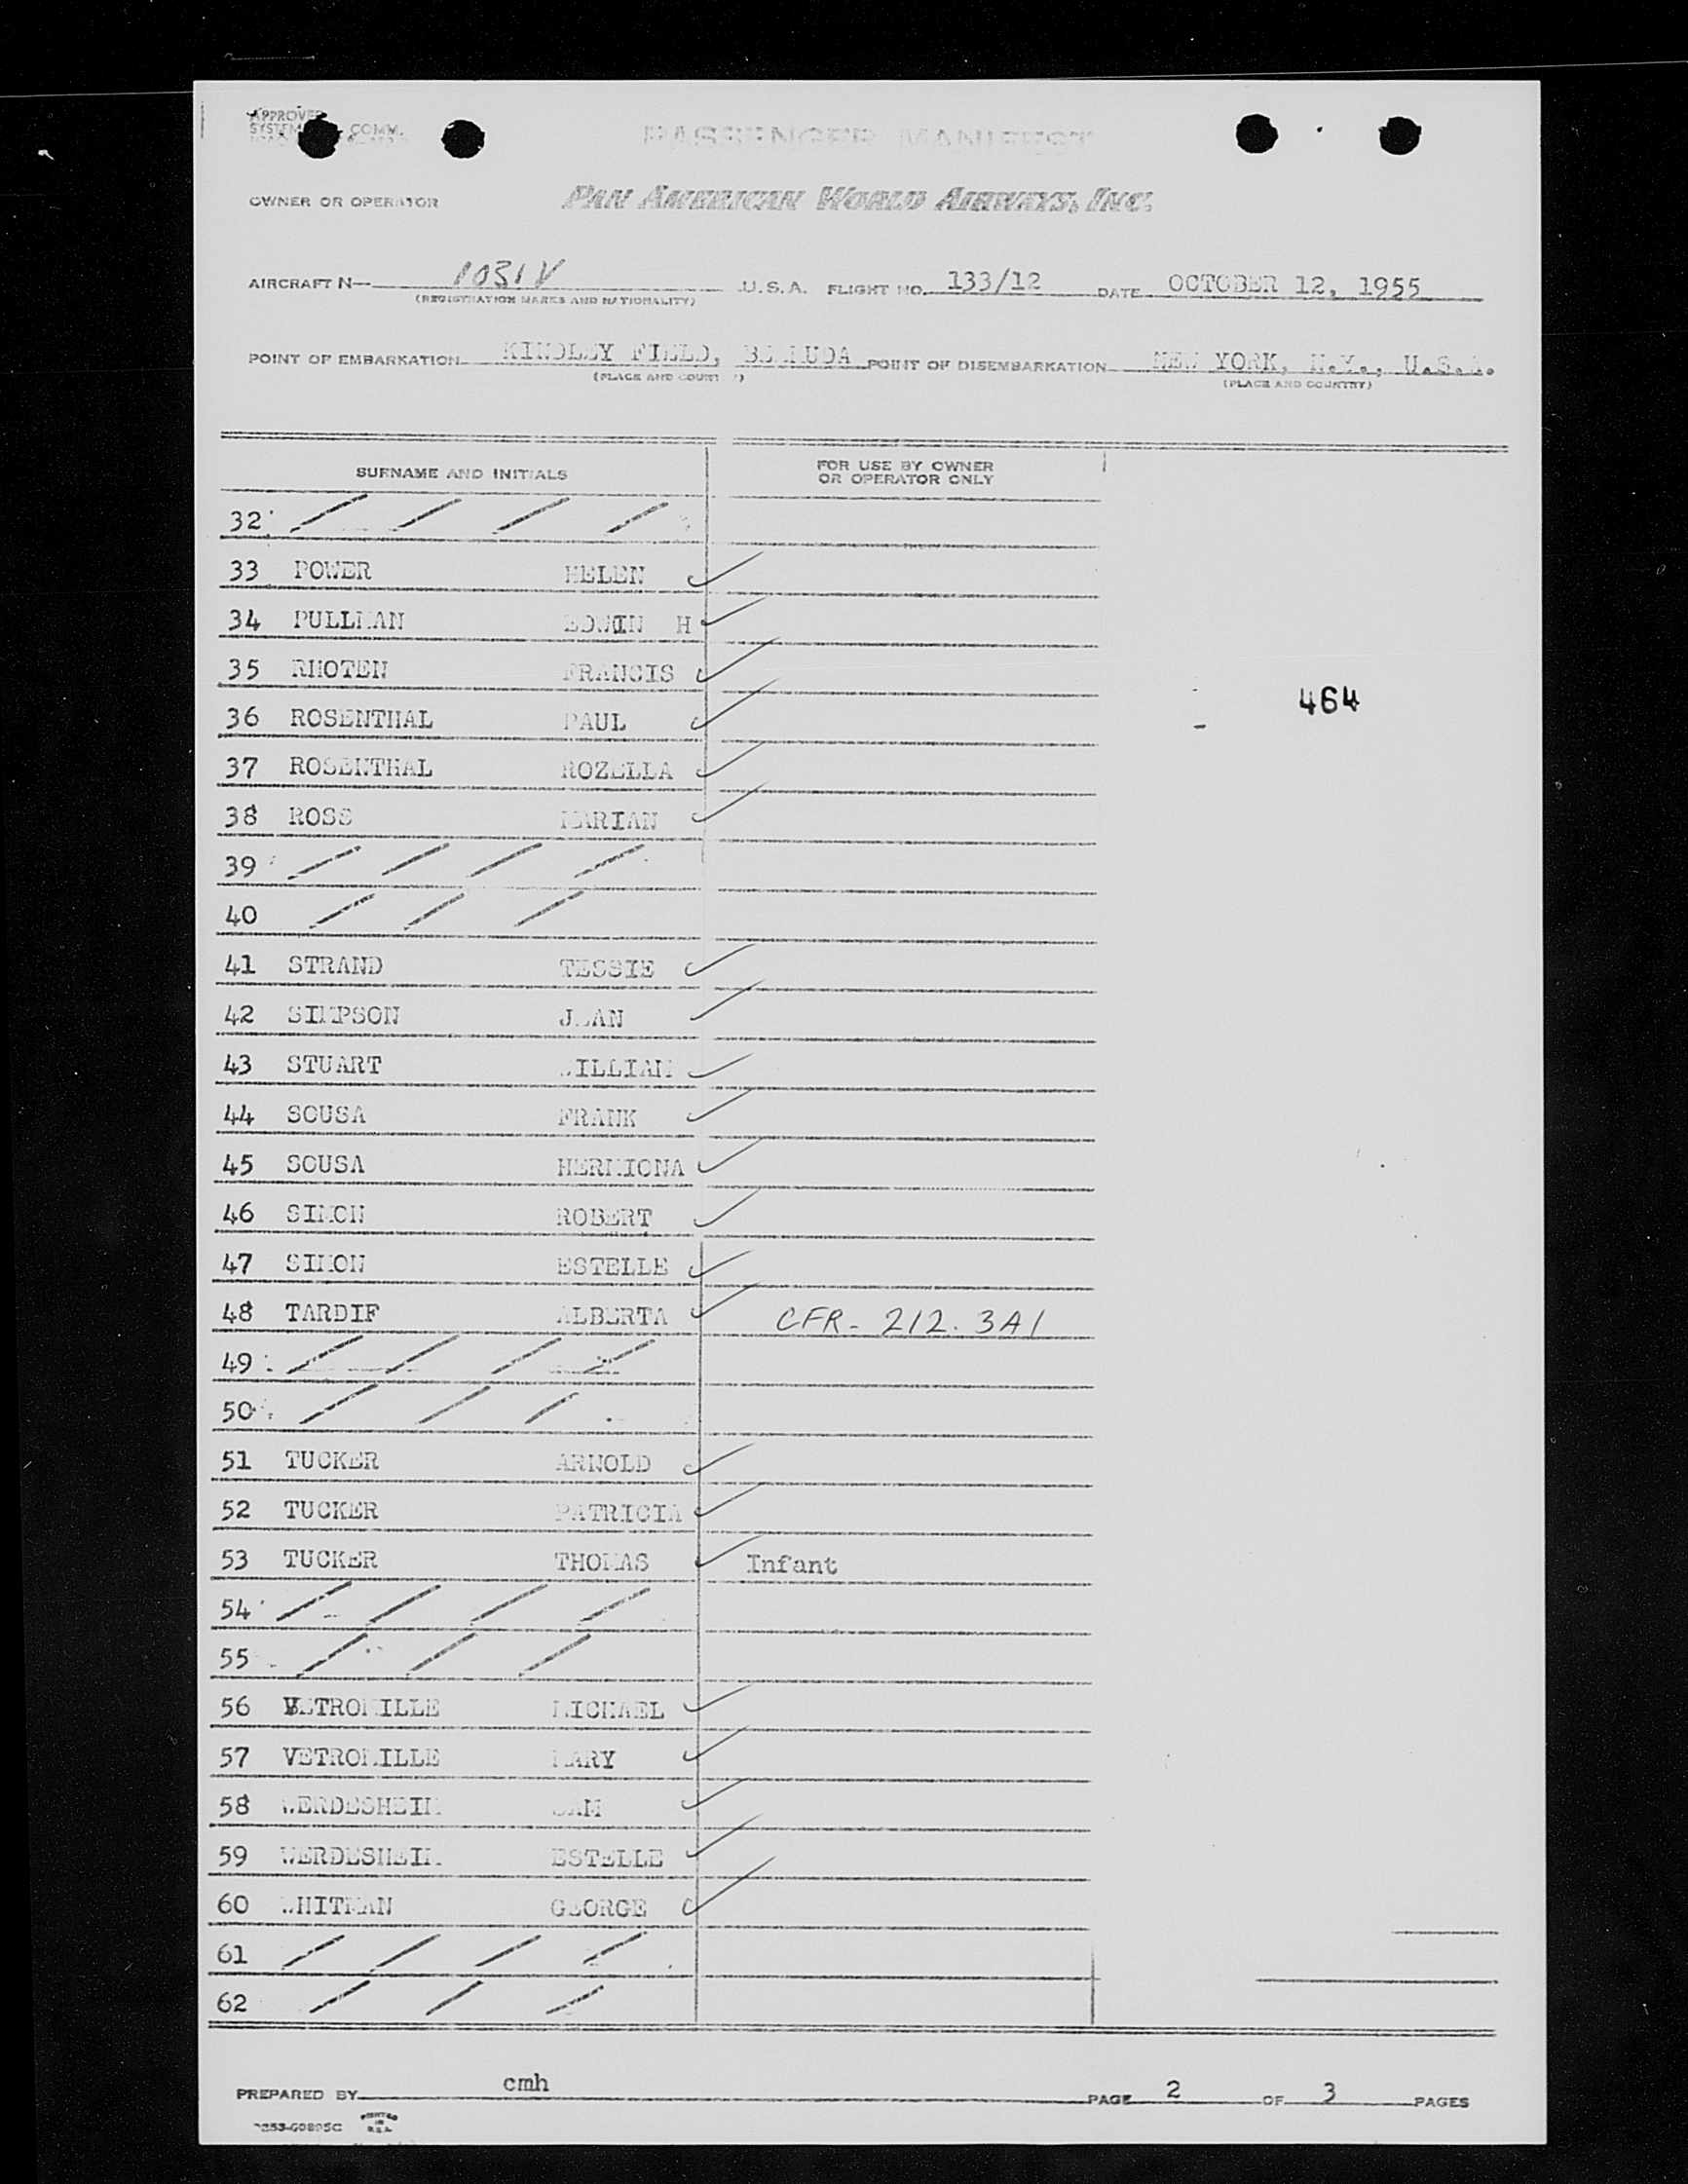 APPROVED
SYSTEM COMM.
PASSENGER MANIFEST
OWNER OR OPERATOR PAN AMERICAN WORLD AIRWAYS, INC.
AIRCRAFT N— 1031V U.S.A. FLIGHT NO. 133/12 DATE OCTOBER 12, 1955
(REGISTRATION MARKS AND NATIONALITY)
POINT OF EMBARKATION KINDLEY FIELD, BERMUDA POINT OF DISEMBARKATION NEW YORK, N.Y., U.S.A.
(PLACE AND COUNTRY) (PLACE AND COUNTRY)
SURNAME AND INITIALS FOR USE BY OWNER
OR OPERATOR ONLY
32 / / / /
33 POWER HELEN ✓
34 PULLMAN EDWIN H ✓
35 RHOTEN FRANCIS ✓
464
36 ROSENTHAL PAUL ✓
37 ROSENTHAL ROZELLA ✓
38 ROSS MARIAN ✓
39 / / / /
40 / / /
41 STRAND TESSIE ✓
42 SIMPSON JEAN ✓
43 STUART WILLIAM ✓
44 SOUSA FRANK ✓
45 SOUSA HERMIONA ✓
46 SIMON ROBERT ✓
47 SIMON ESTELLE ✓
48 TARDIF ALBERTA ✓ CFR- 212. 3A1
49 / / / /
50 / / /
51 TUCKER ARNOLD ✓
52 TUCKER PATRICIA ✓
53 TUCKER THOMAS ✓ Infant
54 / / / /
55 / / /
56 VETROMILLE MICHAEL ✓
57 VETROMILLE MARY ✓
58 WERDESHEIM SAM ✓
59 WERDESHEIM ESTELLE ✓
60 WHITMAN GEORGE ✓
61 / / / /
62 / / /
PREPARED BY cmh PAGE 2 OF 3 PAGES
PRINTED
IN
U.S.A.